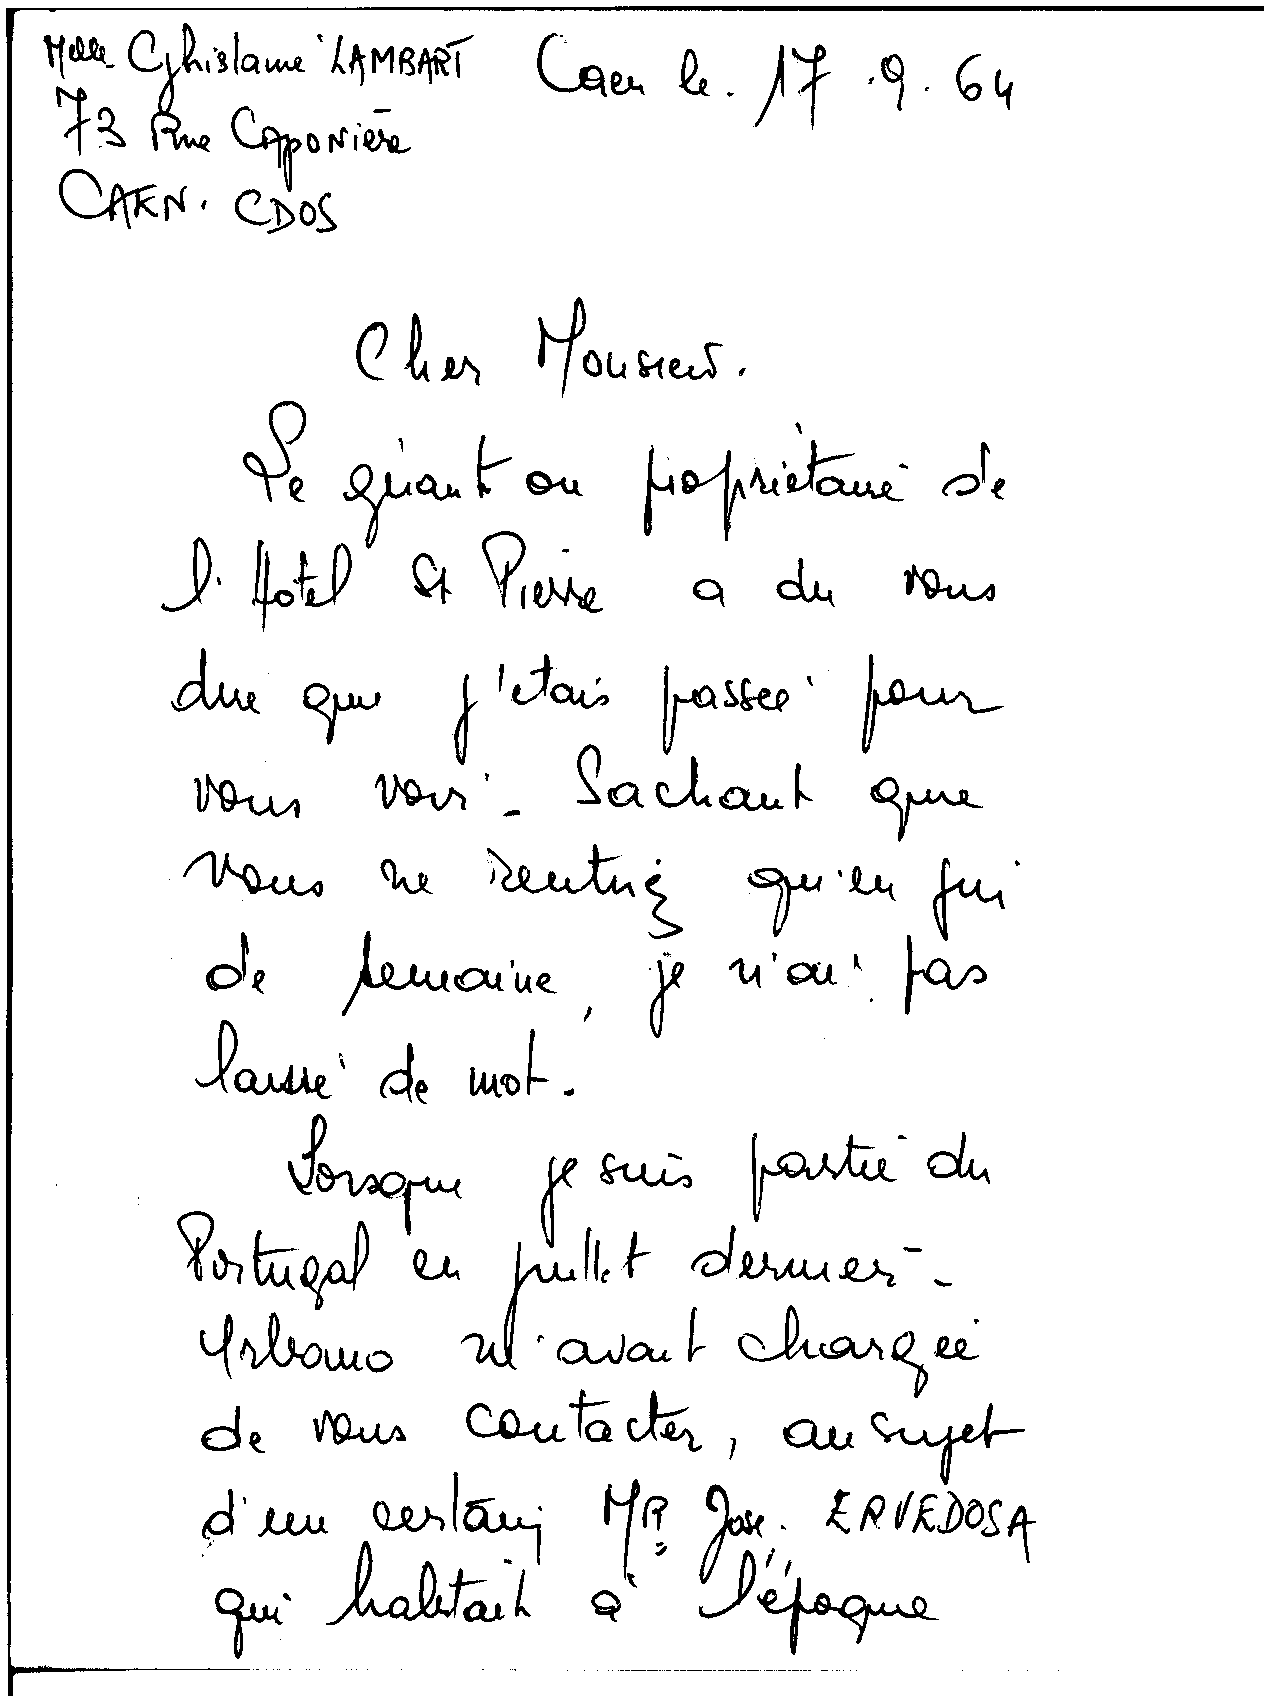 Melle Ghislaine LAMBART Caen le. 17.9.64
73 Rue Caponière
CAEN. CDOS
Cher Monsieur.
Le gérant ou propriétaire de
l'Hotel St Pierre a du vous
dire que j'étais passée pour
vous voir - Sachant que
vous ne rentriez qu'en fin
de semaine, je n'ai pas
laissé de mot.
Lorsque je suis partie du
Portugal en juillet dernier -
Urbano m'avait chargée
de vous contacter, au sujet
d'un certain MR José. ERVEDOSA
qui habitait à l'époque